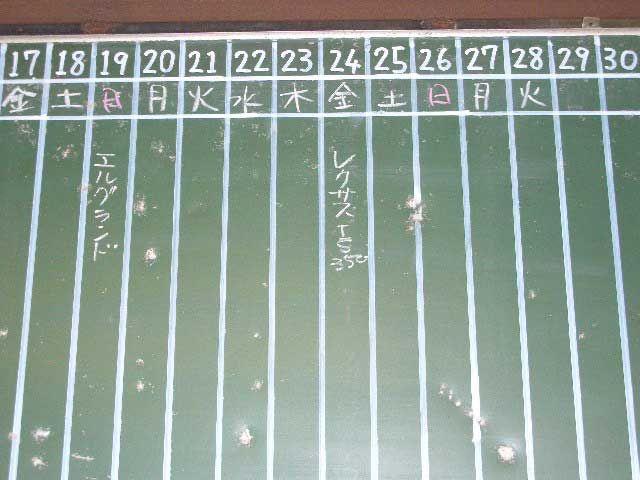 17 18 19 20 21 22 23 24 25 26 27 28 29 30
金 土 日 月 火 水 木 金 土 日 月 火
エルグランド
レクサスIS350